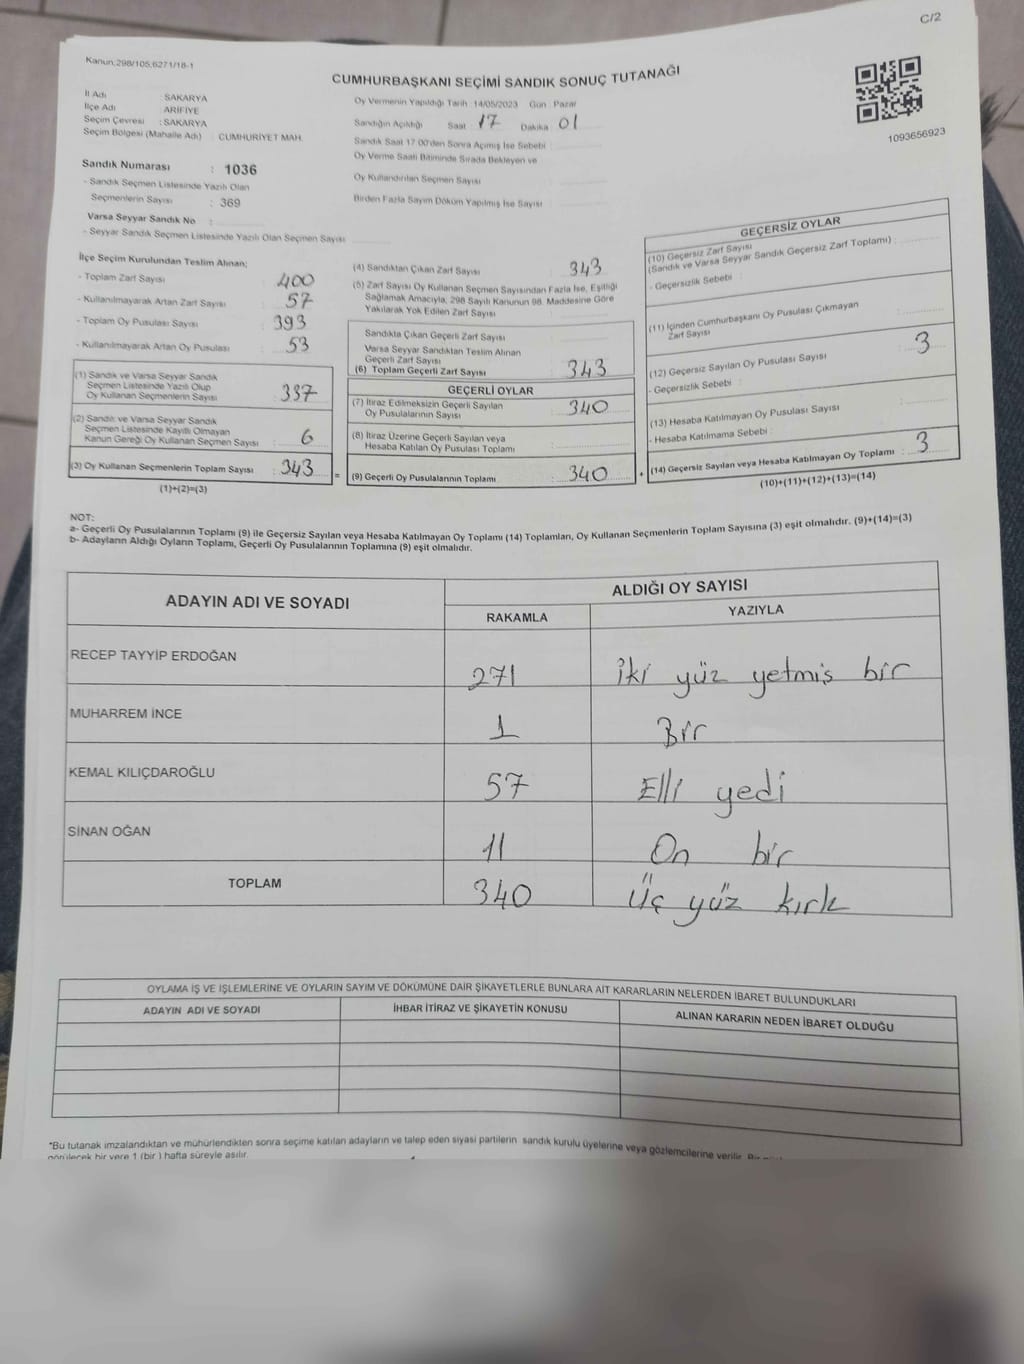 C/2
Kanun;298/105,6271/18-1
CUMHURBAŞKANI SEÇİMİ SANDIK SONUÇ TUTANAĞI
1093656923
İl Adı : SAKARYA
İlçe Adı : ARİFİYE
Seçim Çevresi : SAKARYA
Seçim Bölgesi (Mahalle Adı) : CUMHURİYET MAH.
Sandık Numarası : 1036
- Sandık Seçmen Listesinde Yazılı Olan
Seçmenlerin Sayısı : 369
Varsa Seyyar Sandık No :
- Seyyar Sandık Seçmen Listesinde Yazılı Olan Seçmen Sayısı
Oy Vermenin Yapıldığı Tarih : 14/05/2023 Gün : Pazar
Sandığın Açıldığı Saat : 17 Dakika 01
Sandık Saat 17.00'den Sonra Açımış İse Sebebi :
Oy Verme Saati Bitiminde Sırada Bekleyen ve
Oy Kullandırılan Seçmen Sayısı
Birden Fazla Sayım Döküm Yapılmış İse Sayısı :
İlçe Seçim Kurulundan Teslim Alınan;
- Toplam Zarf Sayısı : 400
- Kullanılmayarak Artan Zarf Sayısı : 57
- Toplam Oy Pusulası Sayısı : 393
- Kullanılmayarak Artan Oy Pusulası : 53
(1) Sandık ve Varsa Seyyar Sandık
Seçmen Listesinde Yazılı Olup
Oy Kullanan Seçmenlerin Sayısı : 337
(2) Sandık ve Varsa Seyyar Sandık
Seçmen Listesinde Kayıtlı Olmayan
Kanun Gereği Oy Kullanan Seçmen Sayısı : 6
(3) Oy Kullanan Seçmenlerin Toplam Sayısı : 343 =
(1)+(2)=(3)
(4) Sandıktan Çıkan Zarf Sayısı : 343
(5) Zarf Sayısı Oy Kullanan Seçmen Sayısından Fazla İse, Eşitliği
Sağlamak Amacıyla, 298 Sayılı Kanunun 98. Maddesine Göre
Yakılarak Yok Edilen Zarf Sayısı :
Sandıkta Çıkan Geçerli Zarf Sayısı :
Varsa Seyyar Sandıktan Teslim Alınan
Geçerli Zarf Sayısı
(6) Toplam Geçerli Zarf Sayısı : 343
GEÇERLİ OYLAR
(7) İtiraz Edilmeksizin Geçerli Sayılan
Oy Pusulalarının Sayısı : 340
(8) İtiraz Üzerine Geçerli Sayılan veya
Hesaba Katılan Oy Pusulası Toplamı :
(9) Geçerli Oy Pusulalarının Toplamı : 340 +
GEÇERSİZ OYLAR
(10) Geçersiz Zarf Sayısı
(Sandık ve Varsa Seyyar Sandık Geçersiz Zarf Toplamı) :
- Geçersizlik Sebebi :
(11) İçinden Cumhurbaşkanı Oy Pusulası Çıkmayan
Zarf Sayısı :
(12) Geçersiz Sayılan Oy Pusulası Sayısı : 3
- Geçersizlik Sebebi :
(13) Hesaba Katılmayan Oy Pusulası Sayısı :
- Hesaba Katılmama Sebebi :
(14) Geçersiz Sayılan veya Hesaba Katılmayan Oy Toplamı : 3
(10)+(11)+(12)+(13)=(14)
NOT:
a- Geçerli Oy Pusulalarının Toplamı (9) ile Geçersiz Sayılan veya Hesaba Katılmayan Oy Toplamı (14) Toplamları, Oy Kullanan Seçmenlerin Toplam Sayısına (3) eşit olmalıdır. (9)+(14)=(3)
b- Adayların Aldığı Oyların Toplamı, Geçerli Oy Pusulalarının Toplamına (9) eşit olmalıdır.
ADAYIN ADI VE SOYADI ALDIĞI OY SAYISI
RAKAMLA YAZIYLA
RECEP TAYYİP ERDOĞAN 271 iki yüz yetmiş bir
MUHARREM İNCE 1 Bir
KEMAL KILIÇDAROĞLU 57 Elli yedi
SİNAN OĞAN 11 On bir
TOPLAM 340 Üç yüz kırk
OYLAMA İŞ VE İŞLEMLERİNE VE OYLARIN SAYIM VE DÖKÜMÜNE DAİR ŞİKAYETLERLE BUNLARA AİT KARARLARIN NELERDEN İBARET BULUNDUKLARI
ADAYIN ADI VE SOYADI İHBAR İTİRAZ VE ŞİKAYETİN KONUSU ALINAN KARARIN NEDEN İBARET OLDUĞU
*Bu tutanak imzalandıktan ve mühürlendikten sonra seçime katılan adayların ve talep eden siyasi partilerin sandık kurulu üyelerine veya gözlemcilerine verilir. Bir
görülecek bir yere 1 (bir ) hafta süreyle asılır.